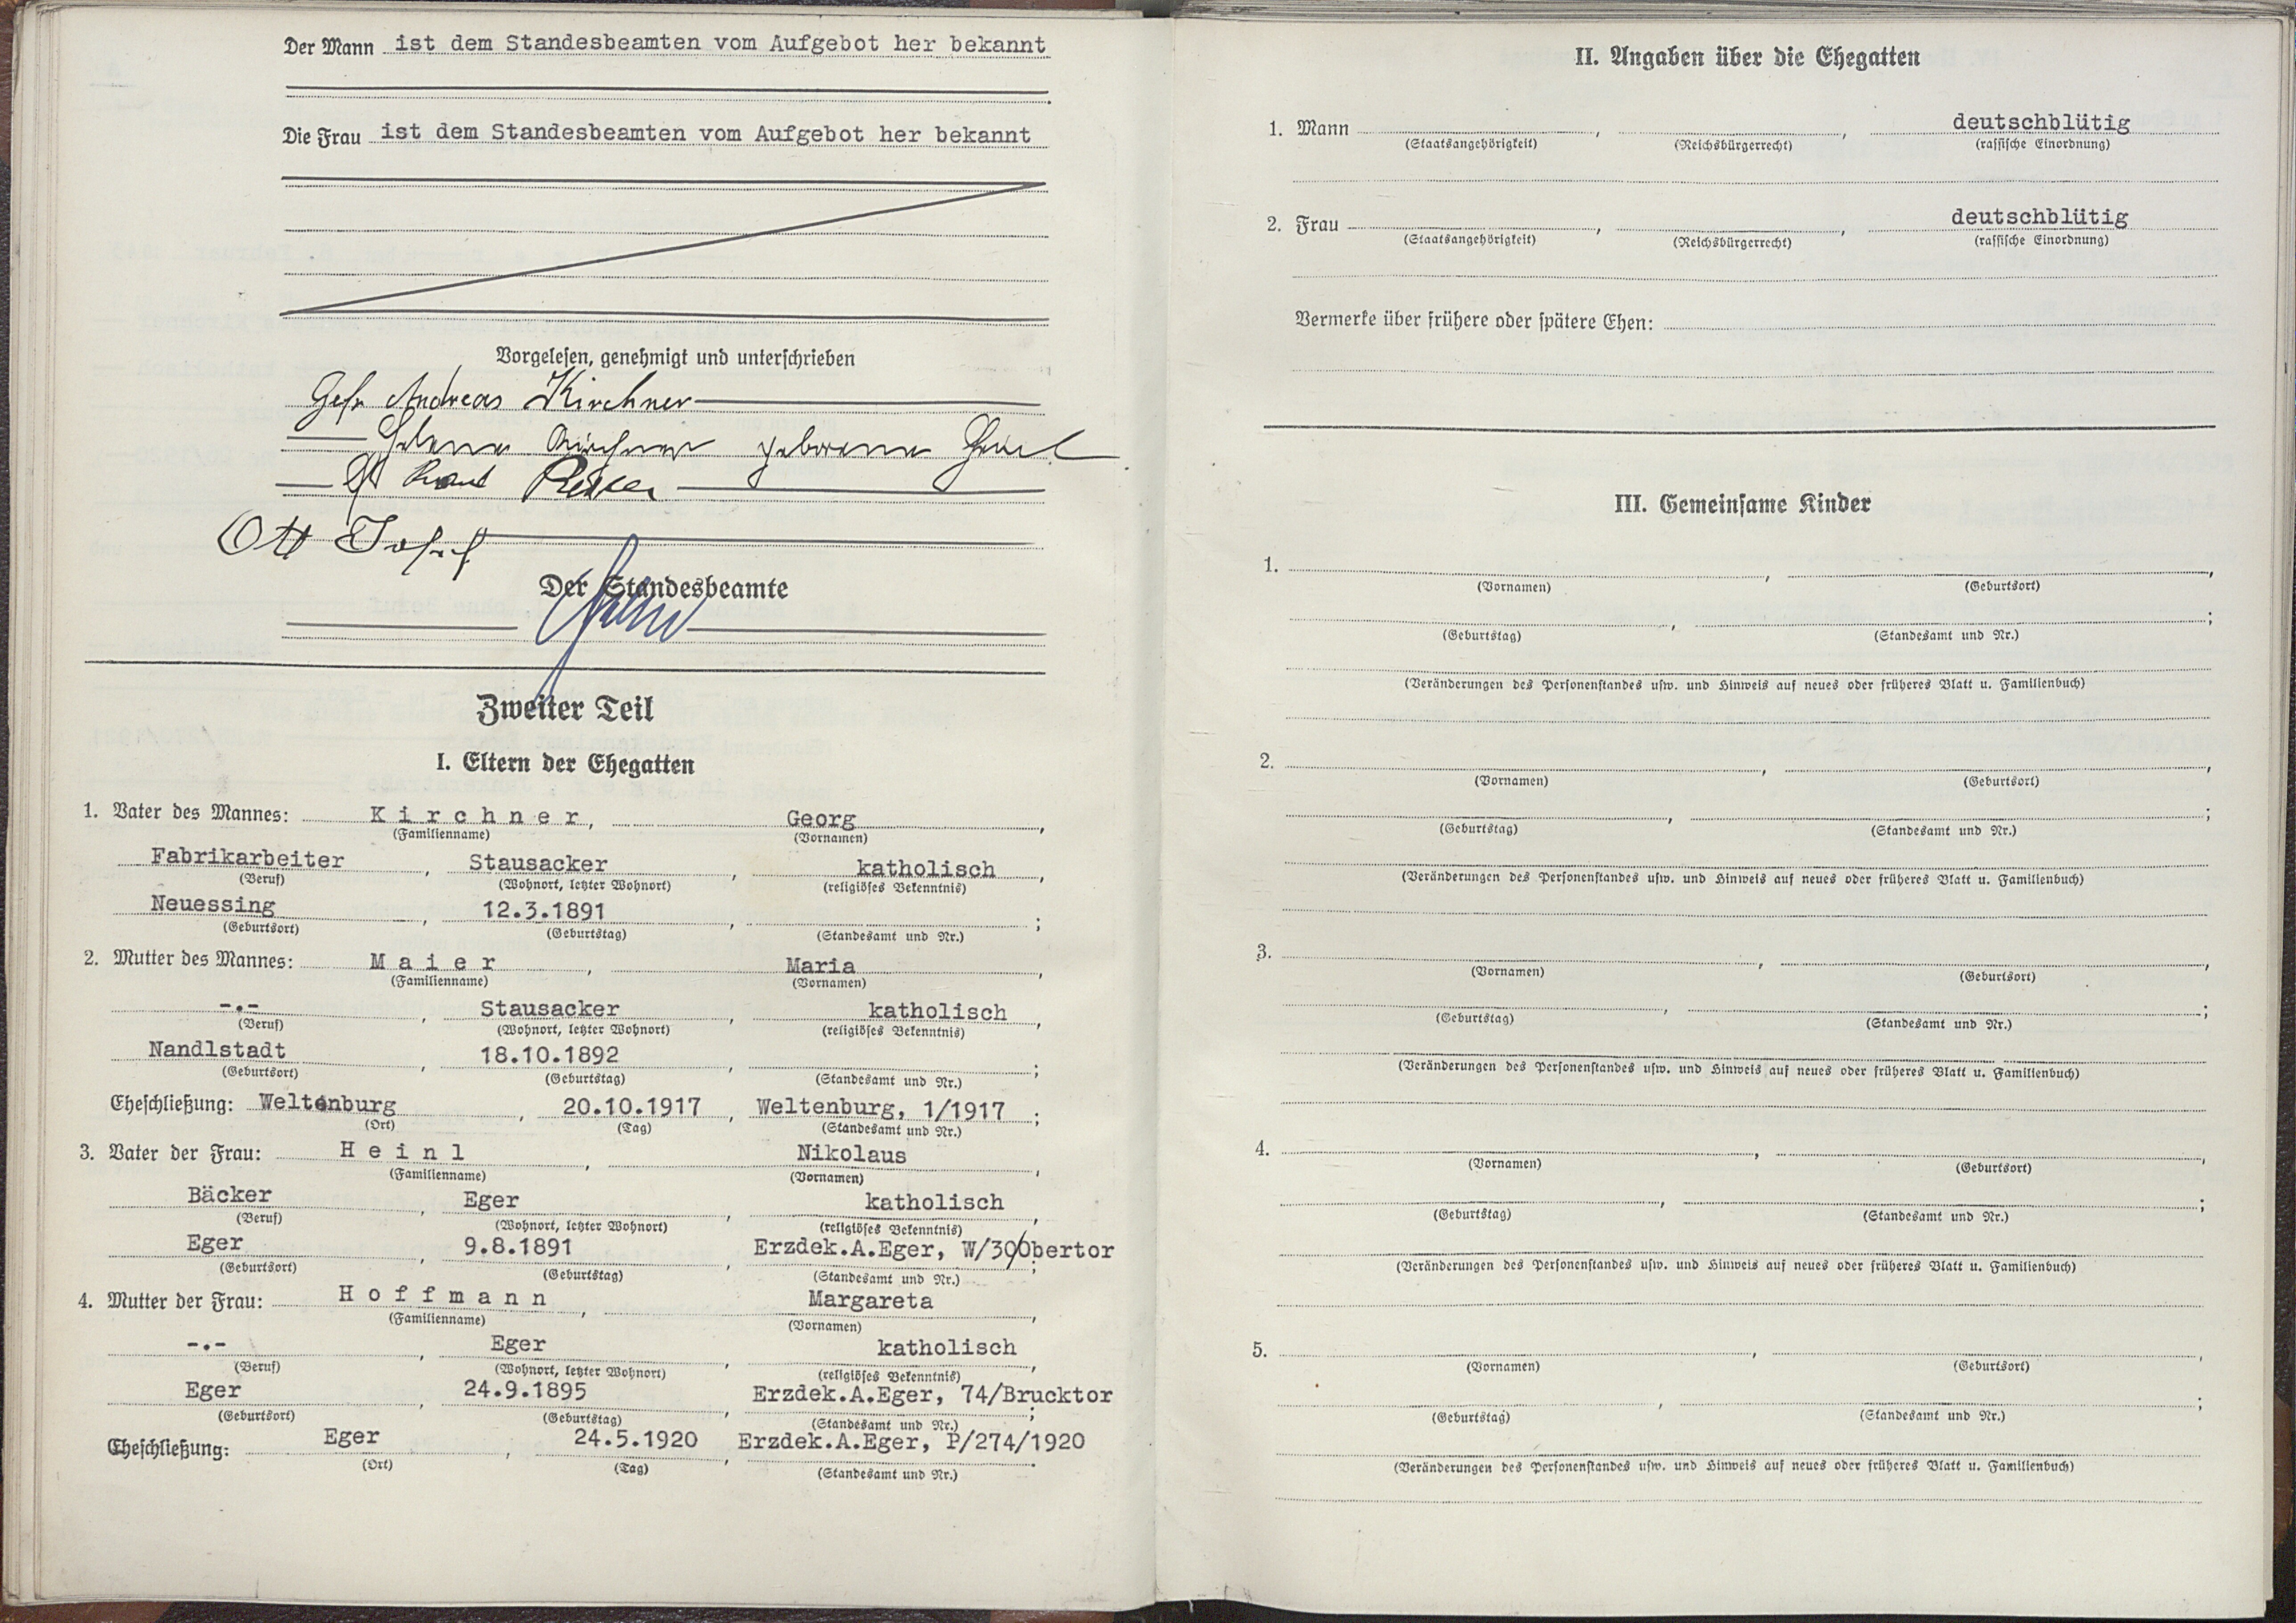 Der Mann ist dem Standesbeamten vom Aufgebot her bekannt
Die Frau ist dem Standesbeamten vom Aufgebot her bekannt
Vorgelesen, genehmigt und unterschrieben
Gefr Andreas Kirchner
Helena Kirchner geborene Heinl
Ott Josef
Der Standesbeamte
Zweiter Teil
I. Eltern der Ehegatten
1. Vater des Mannes: Kirchner, Georg,
(Familienname) (Vornamen)
Fabrikarbeiter, Stausacker, katholisch,
(Beruf) (Wohnort, letzter Wohnort) (religiöses Bekenntnis)
Neuessing, 12.3.1891, ;
(Geburtsort) (Geburtstag) (Standesamt und Nr.)
2. Mutter des Mannes: Maier, Maria,
(Familienname) (Vornamen)
-.-, Stausacker, katholisch,
(Beruf) (Wohnort, letzter Wohnort) (religiöses Bekenntnis)
Nandlstadt, 18.10.1892, ;
(Geburtsort) (Geburtstag) (Standesamt und Nr.)
Eheschließung: Weltenburg, 20.10.1917, Weltenburg, 1/1917;
(Ort) (Tag) (Standesamt und Nr.)
3. Vater der Frau: Heinl, Nikolaus,
(Familienname) (Vornamen)
Bäcker, Eger, katholisch,
(Beruf) (Wohnort, letzter Wohnort) (religiöses Bekenntnis)
Eger, 9.8.1891, Erzdek.A.Eger, W/30/Obertor;
(Geburtsort) (Geburtstag) (Standesamt und Nr.)
4. Mutter der Frau: Hoffmann, Margareta,
(Familienname) (Vornamen)
-.-, Eger, katholisch,
(Beruf) (Wohnort, letzter Wohnort) (religiöses Bekenntnis)
Eger, 24.9.1895, Erzdek.A.Eger, 74/Brucktor;
(Geburtsort) (Geburtstag) (Standesamt und Nr.)
Eheschließung: Eger, 24.5.1920, Erzdek.A.Eger, P/274/1920.
(Ort) (Tag) (Standesamt und Nr.)
II. Angaben über die Ehegatten
1. Mann , , deutschblütig
(Staatsangehörigkeit) (Reichsbürgerrecht) (rassische Einordnung)
2. Frau , , deutschblütig
(Staatsangehörigkeit) (Reichsbürgerrecht) (rassische Einordnung)
Vermerke über frühere oder spätere Ehen:
III. Gemeinsame Kinder
1. , ,
(Vornamen) (Geburtsort)
, ;
(Geburtstag) (Standesamt und Nr.)
(Veränderungen des Personenstandes usw. und Hinweis auf neues oder früheres Blatt u. Familienbuch)
2. , ,
(Vornamen) (Geburtsort)
, ;
(Geburtstag) (Standesamt und Nr.)
(Veränderungen des Personenstandes usw. und Hinweis auf neues oder früheres Blatt u. Familienbuch)
3. , ,
(Vornamen) (Geburtsort)
, ;
(Geburtstag) (Standesamt und Nr.)
(Veränderungen des Personenstandes usw. und Hinweis auf neues oder früheres Blatt u. Familienbuch)
4. , ,
(Vornamen) (Geburtsort)
, ;
(Geburtstag) (Standesamt und Nr.)
(Veränderungen des Personenstandes usw. und Hinweis auf neues oder früheres Blatt u. Familienbuch)
5. , ,
(Vornamen) (Geburtsort)
, ;
(Geburtstag) (Standesamt und Nr.)
(Veränderungen des Personenstandes usw. und Hinweis auf neues oder früheres Blatt u. Familienbuch)